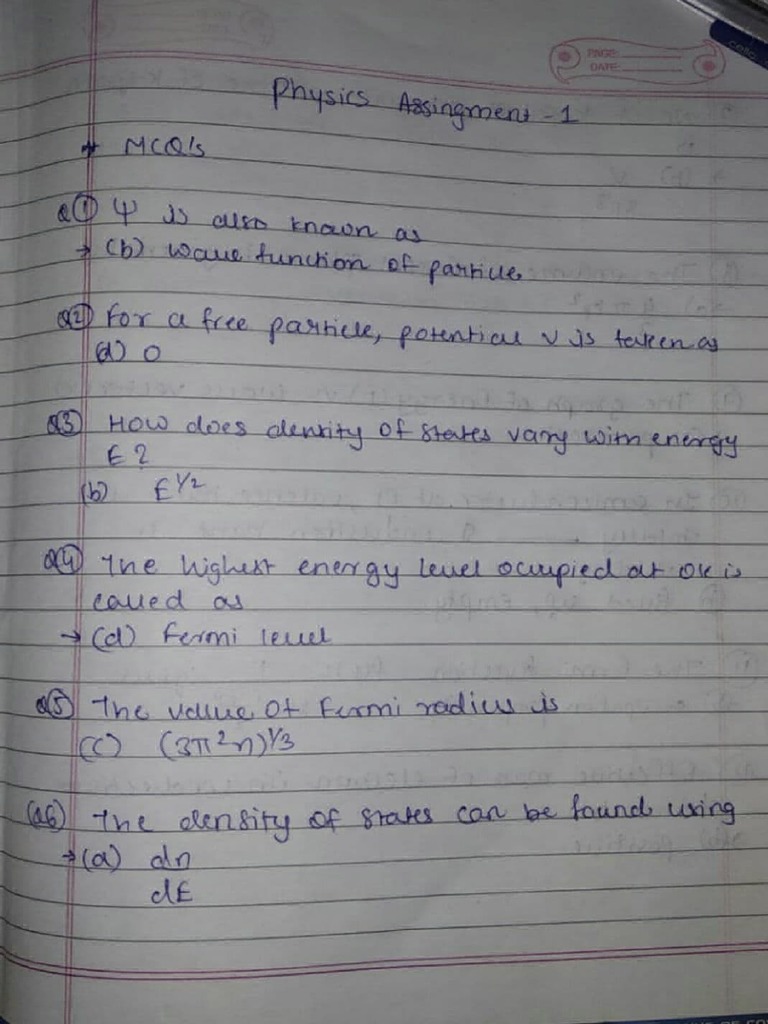 PAGE:
DATE:
Physics Assingment - 1
→ MCQ's
Q① Ψ is also known as
→ (b) wave function of particle
Q② For a free particle, potential v is taken as
(d) 0
Q③ How does density of states vary with energy
E ?
(b) E^1/2
Q④ The highest energy level occupied at 0K is
called as
→ (d) Fermi level
Q⑤ The value of Fermi radius is
(c) (3π²n)^1/3
Q⑥ The density of states can be found using
→ (a) dn
dE